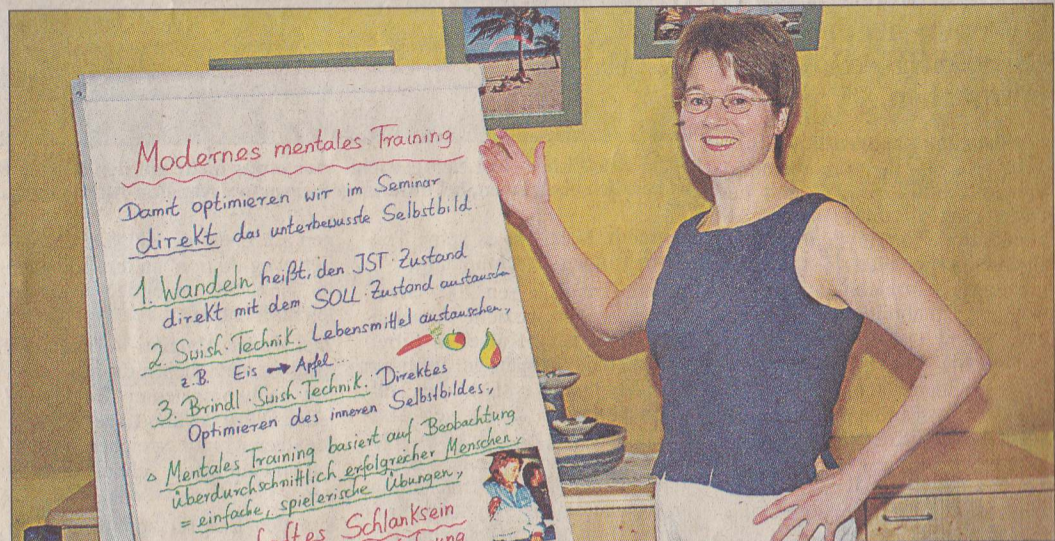 Modernes mentales Training
Damit optimieren wir im Seminar
direkt das unterbewusste Selbstbild.
1. Wandeln heißt, den IST-Zustand
direkt mit dem SOLL-Zustand austauschen
2. Swish-Technik. Lebensmittel austauschen,
z.B. Eis → Apfel...
3. Brindl-Swish-Technik. Direktes
Optimieren des inneren Selbstbildes,
Mentales Training basiert auf Beobachtung
überdurchschnittlich erfolgreicher Menschen,
= einfache, spielerische Übungen,
Schlanksein